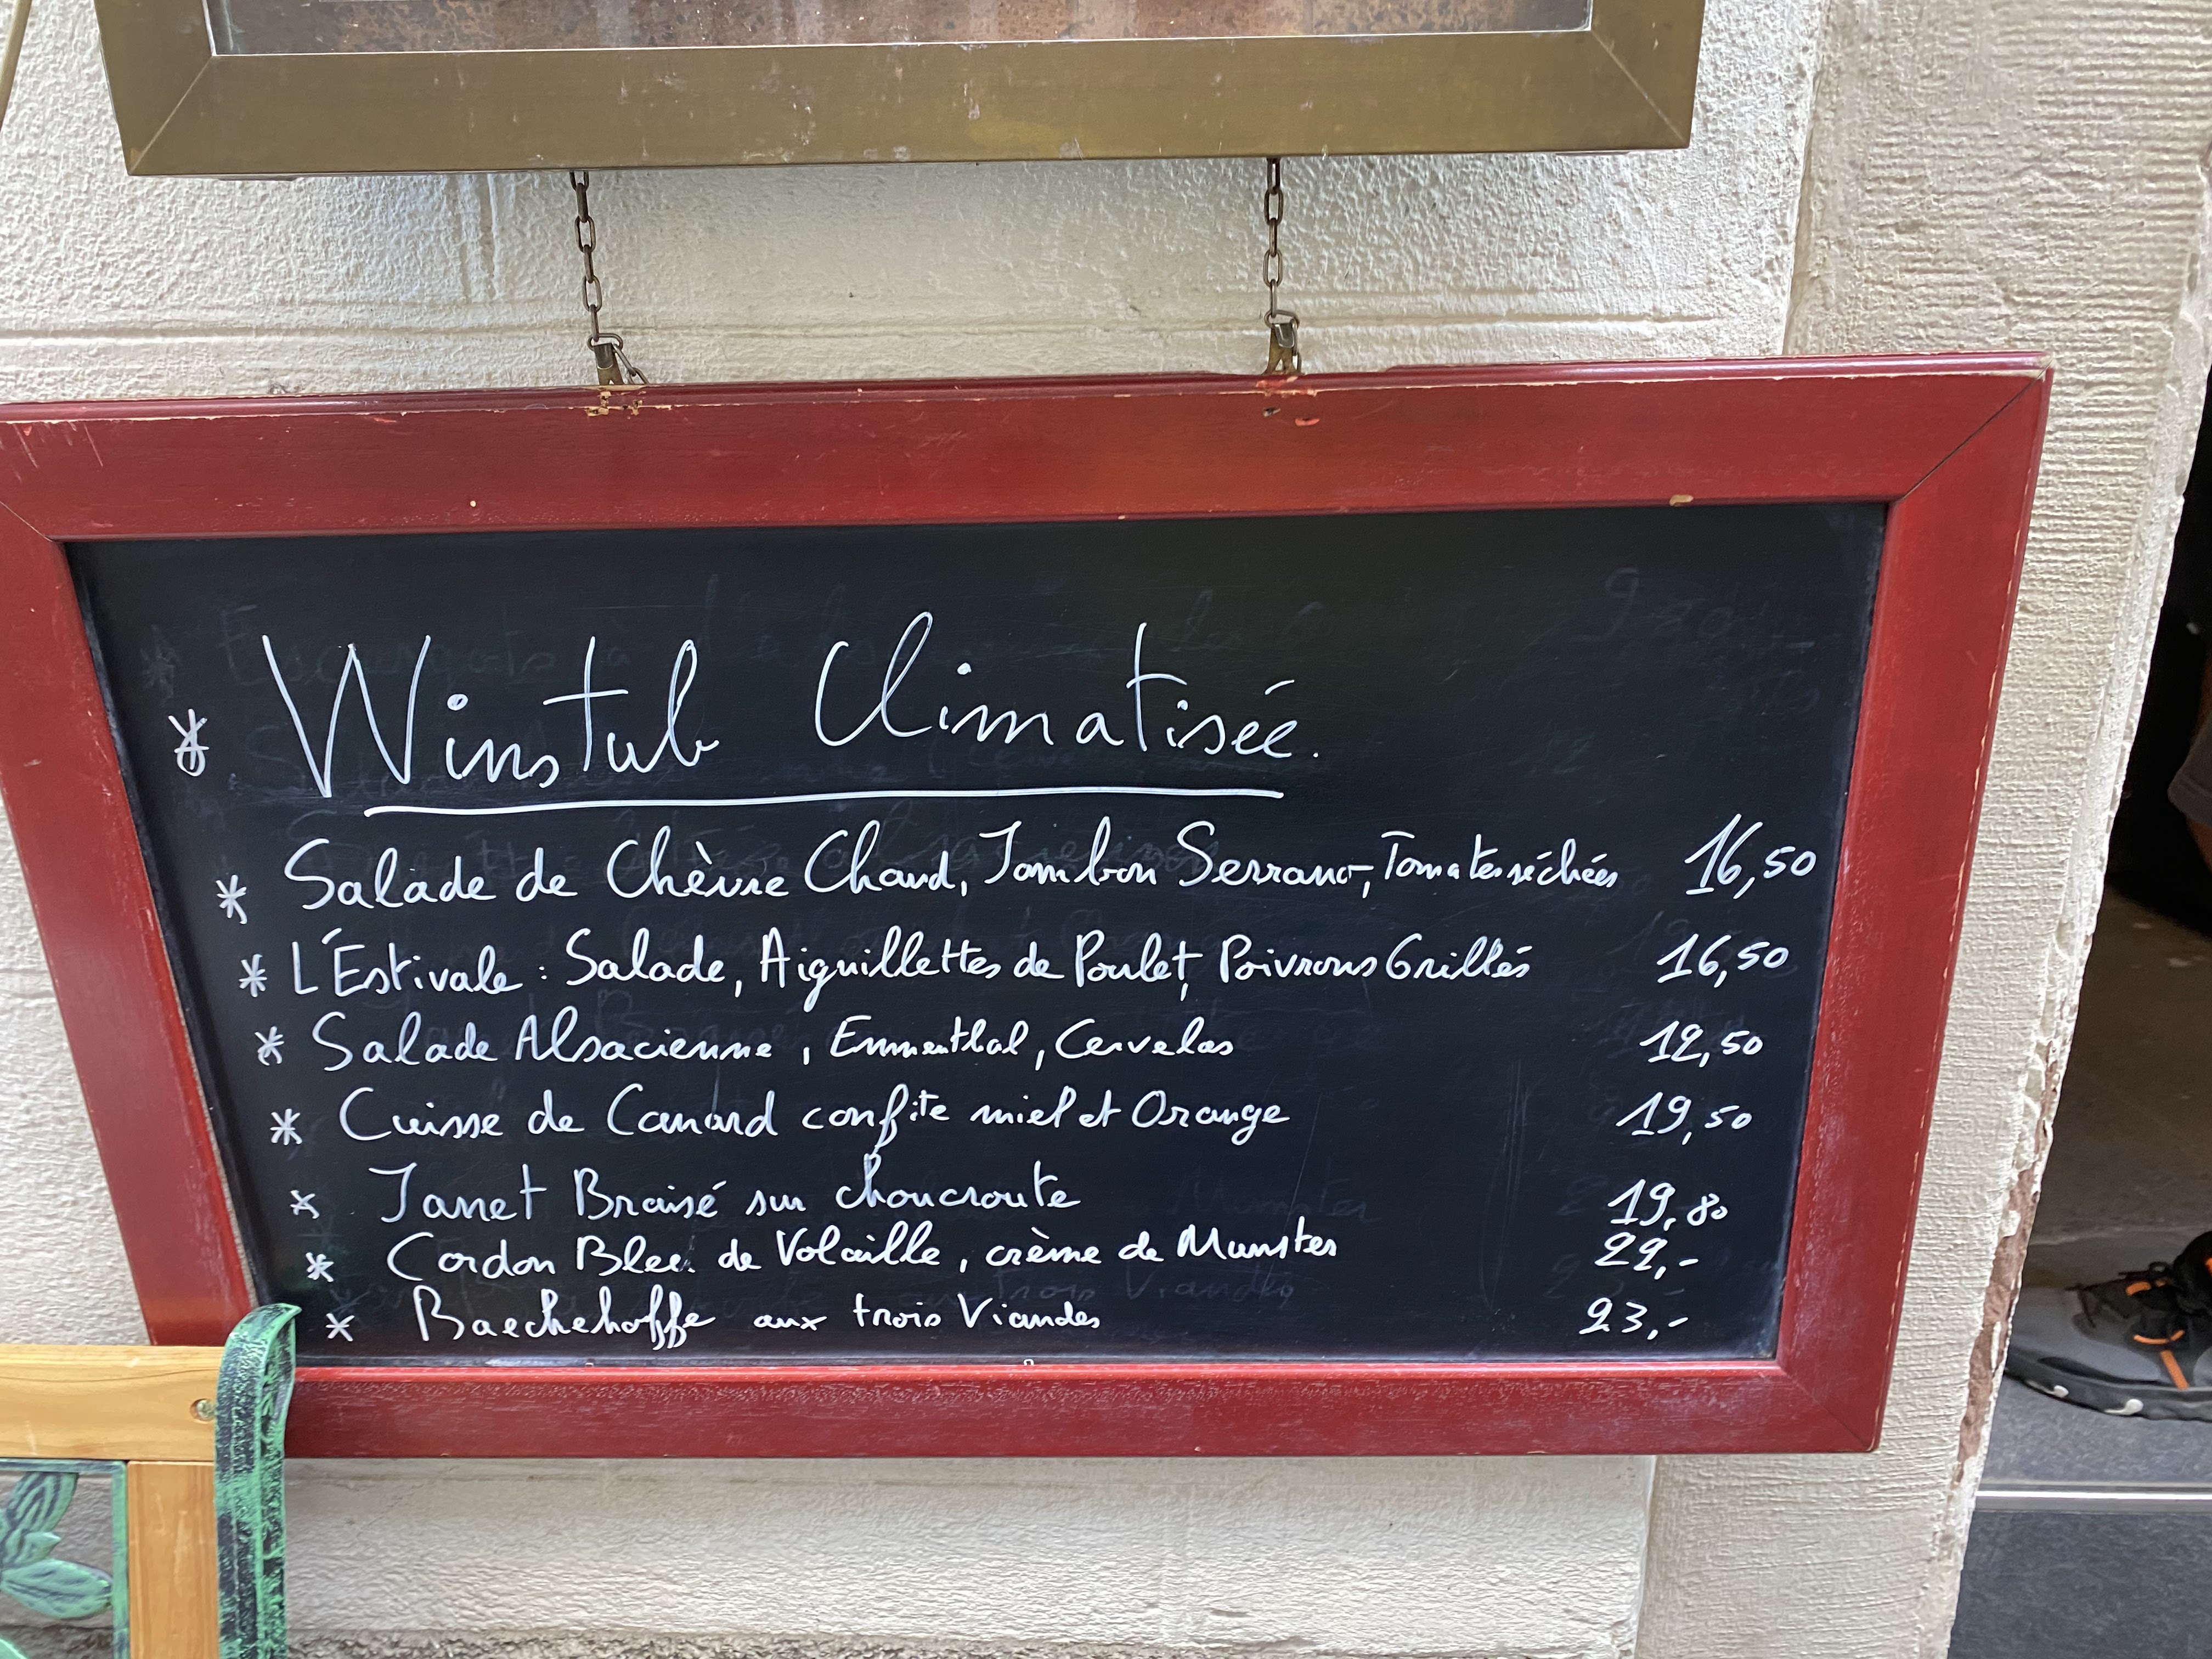 * Winstub Climatisée.
* Salade de Chèvre Chaud, Jambon Serrano, Tomates séchées 16,50
* L'Estivale : Salade, Aiguillettes de Poulet, Poivrons Grillés 16,50
* Salade Alsacienne, Emmenthal, Cervelas 12,50
* Cuisse de Canard confite miel et Orange 19,50
* Jarret Braisé sur choucroute 19,80
* Cordon Bleu de Volaille, crème de Munster 22,-
* Baechehoffe aux trois Viandes 23,-